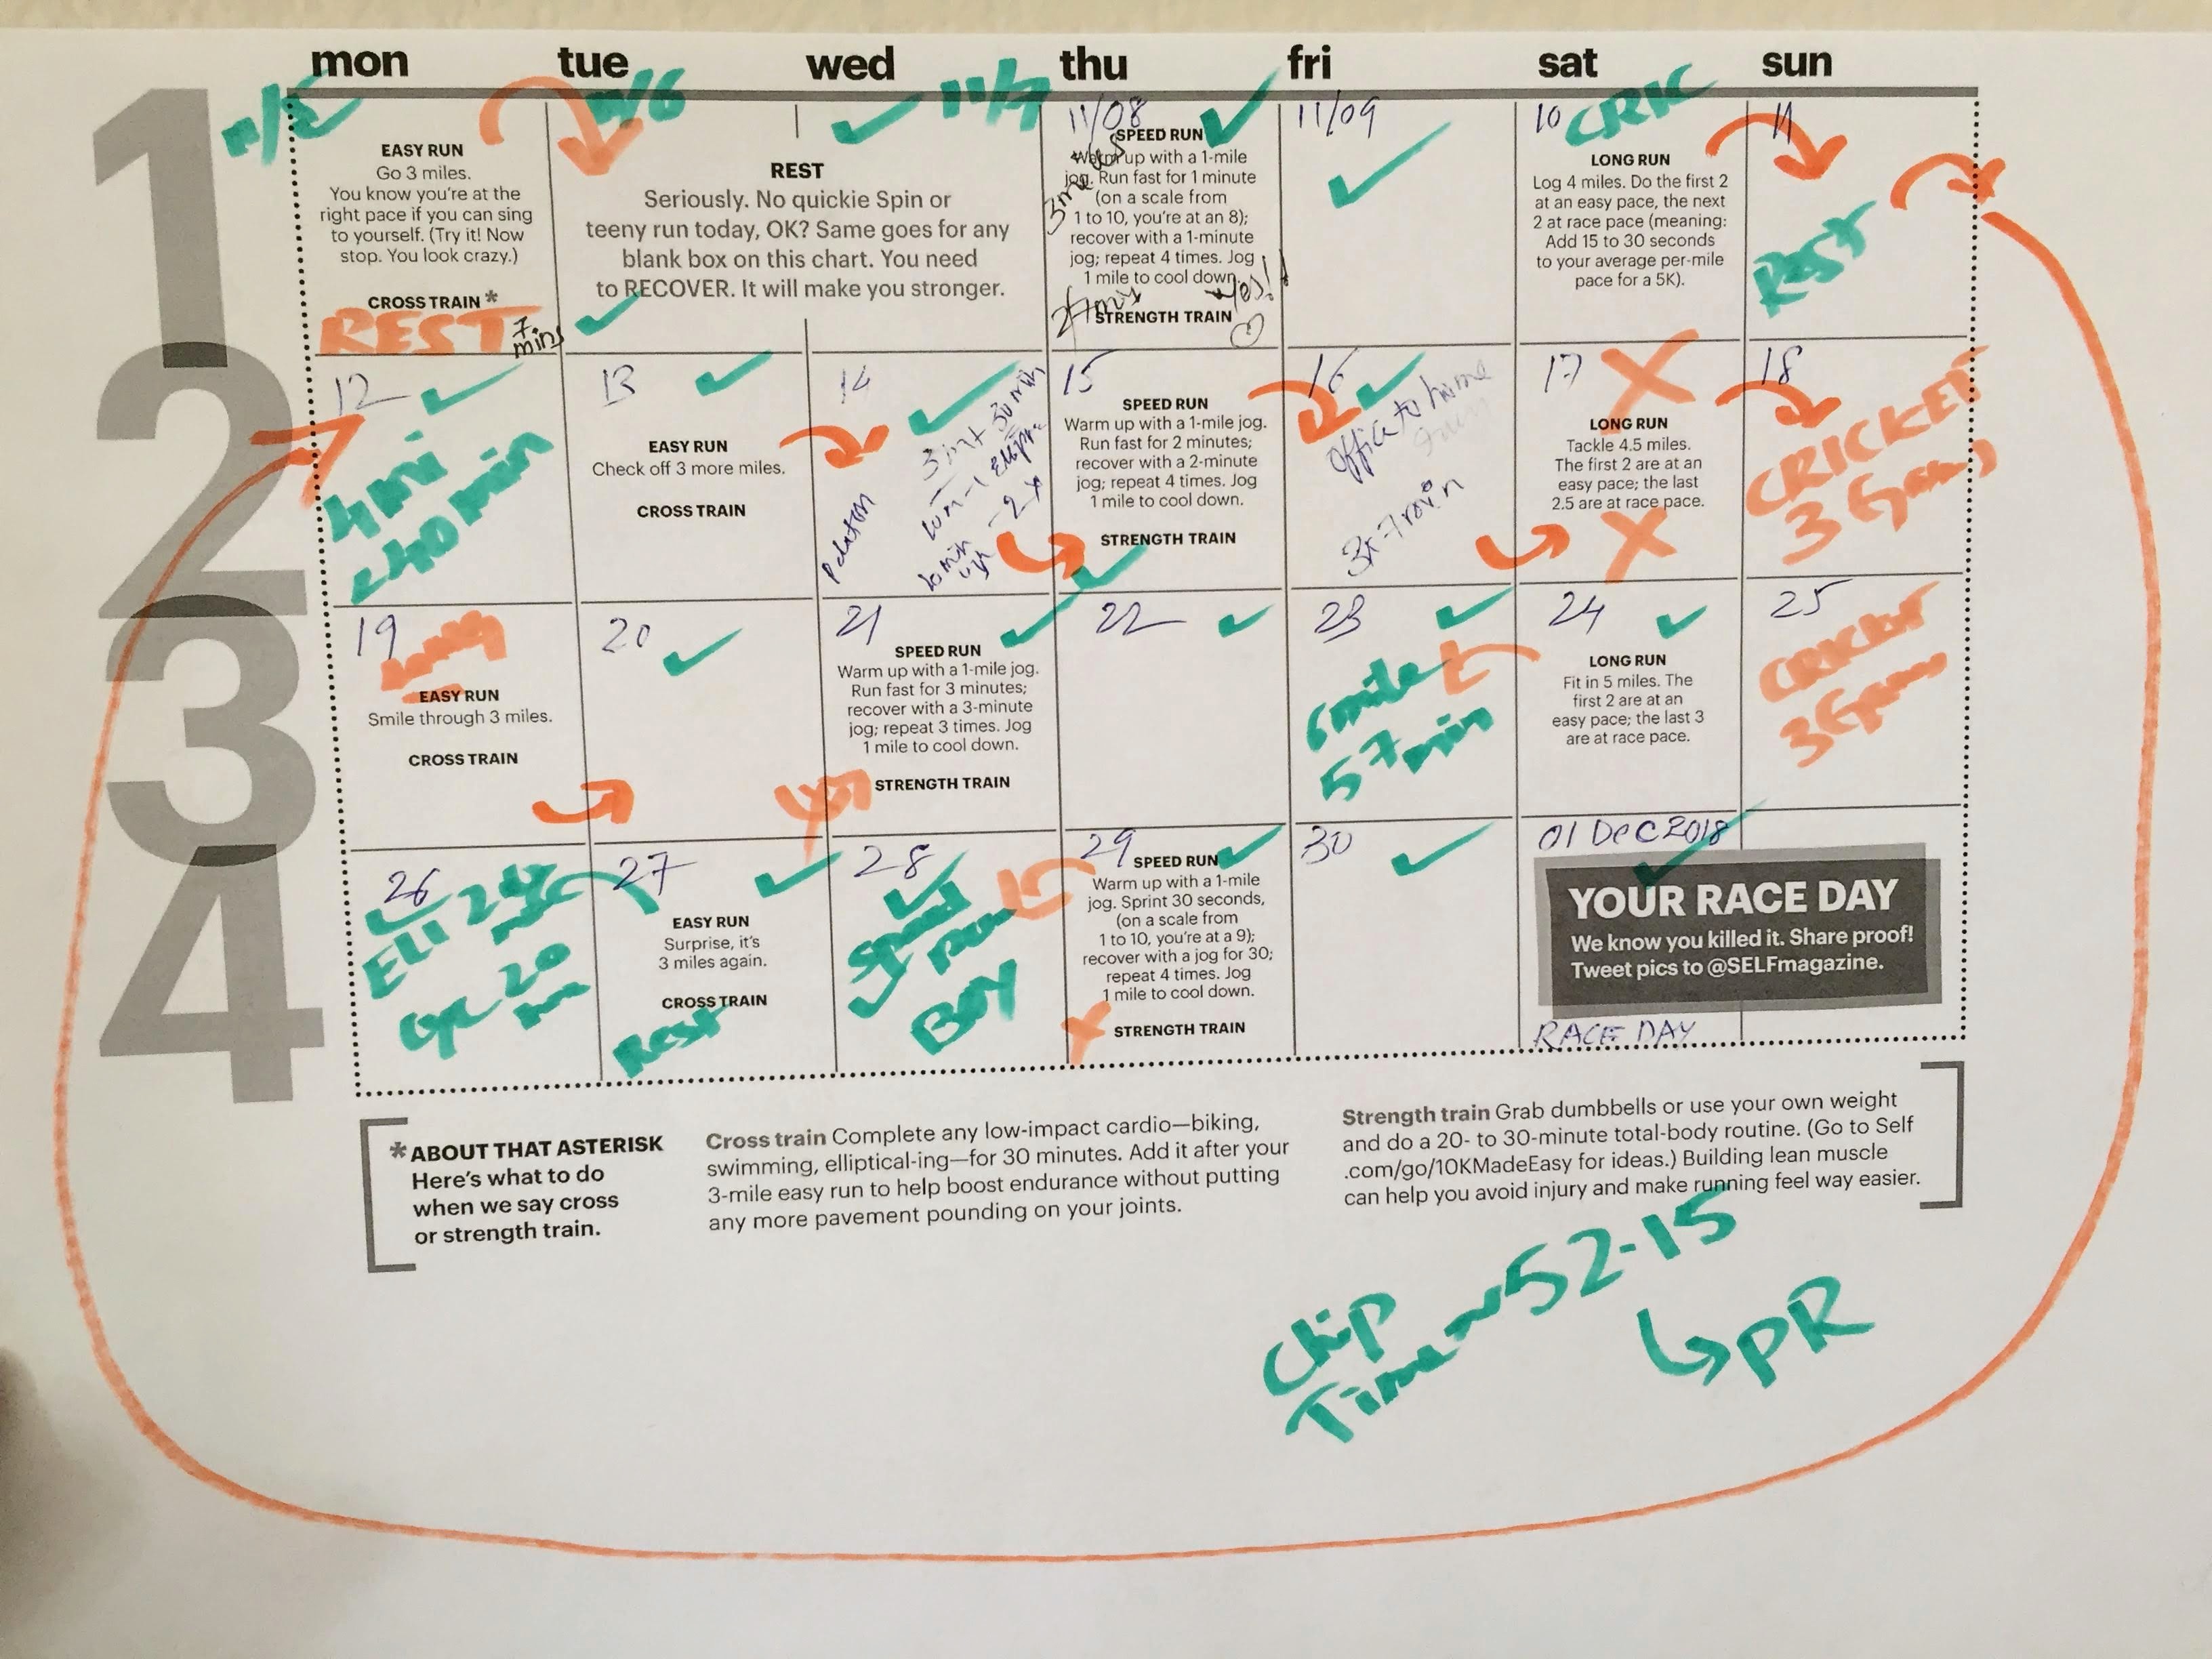 mon tue wed thu fri sat sun
1
11/5
EASY RUN
Go 3 miles.
You know you're at the
right pace if you can sing
to yourself. (Try it! Now
stop. You look crazy.)
CROSS TRAIN *
REST
7
mins
11/6
11/7
REST
Seriously. No quickie Spin or
teeny run today, OK? Same goes for any
blank box on this chart. You need
to RECOVER. It will make you stronger.
11/08
SPEED RUN
Warm up with a 1-mile
jog. Run fast for 1 minute
(on a scale from
1 to 10, you're at an 8);
recover with a 1-minute
jog; repeat 4 times. Jog
1 mile to cool down.
Yes!!
STRENGTH TRAIN
11/09
10
CRIC
LONG RUN
Log 4 miles. Do the first 2
at an easy pace, the next
2 at race pace (meaning:
Add 15 to 30 seconds
to your average per-mile
pace for a 5K).
11
REST
2
12
4mi
<40 min
13
EASY RUN
Check off 3 more miles.
CROSS TRAIN
14
15
SPEED RUN
Warm up with a 1-mile jog.
Run fast for 2 minutes;
recover with a 2-minute
jog; repeat 4 times. Jog
1 mile to cool down.
STRENGTH TRAIN
16
office to home
17
LONG RUN
Tackle 4.5 miles.
The first 2 are at an
easy pace; the last
2.5 are at race pace.
18
CRICKET
3
3
19
EASY RUN
Smile through 3 miles.
CROSS TRAIN
20
21
SPEED RUN
Warm up with a 1-mile jog.
Run fast for 3 minutes;
recover with a 3-minute
jog; repeat 3 times. Jog
1 mile to cool down.
STRENGTH TRAIN
22
23
6 mile
57 min
24
LONG RUN
Fit in 5 miles. The
first 2 are at an
easy pace; the last 3
are at race pace.
25
CRICKET
3
4
26
20
27
EASY RUN
Surprise, it's
3 miles again.
CROSS TRAIN
Rest
28
Speed
run
BOY
29
SPEED RUN
Warm up with a 1-mile
jog. Sprint 30 seconds,
(on a scale from
1 to 10, you're at a 9);
recover with a jog for 30;
repeat 4 times. Jog
1 mile to cool down.
STRENGTH TRAIN
30
01 Dec 2018
YOUR RACE DAY
We know you killed it. Share proof!
Tweet pics to @SELFmagazine.
RACE DAY
*ABOUT THAT ASTERISK
Here's what to do
when we say cross
or strength train.
Cross train Complete any low-impact cardio—biking,
swimming, elliptical-ing—for 30 minutes. Add it after your
3-mile easy run to help boost endurance without putting
any more pavement pounding on your joints.
Strength train Grab dumbbells or use your own weight
and do a 20- to 30-minute total-body routine. (Go to Self
.com/go/10KMadeEasy for ideas.) Building lean muscle
can help you avoid injury and make running feel way easier.
Chip
Time ~ 52-15
PR